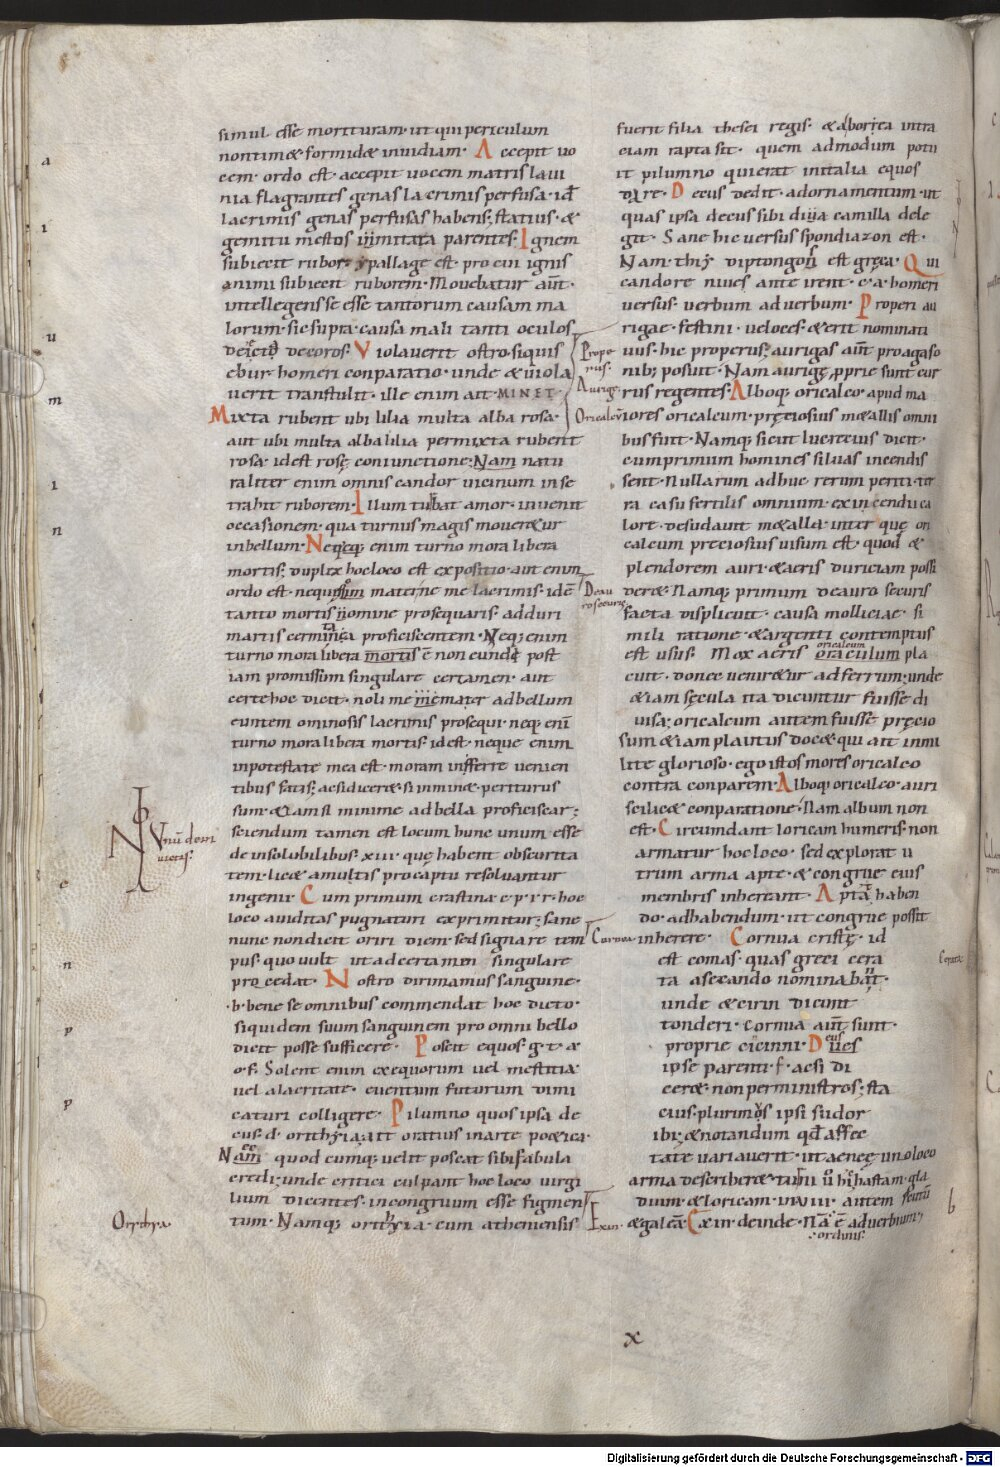 simul esse morituram· ut qui periculum
non timet formidet inuidiam· Accepit uo
cem· ordo est· accepit uocem matris laui
nia flagrantes genas lacrimis perfusa· id
lacrimis genas perfusas habens; statius· &
gemitu mestos imitata parentes· Ignem
subiecit rubor· ypallage est· pro cui ignis
animi subiecit ruborem· Mouebatur aut·
intellegens se esse tantorum causam ma
lorum· sic supra· causa mali tanti oculos
deiecta decoros· Violauerit ostro· siquis
ebur homeri conparatio· unde & uiola
uerit transtulit· ille enim ait· MINET·
Mixta rubent ubi lilia multa alba rosa·
aut ubi multa alba lilia permixta rubent
rosa· id est rose coniunctione; Nam natu
raliter enim omnis candor uicinum in se
trahit ruborem· Illum turbat amor· inuenit
occasionem· qua turnus magis moueretur
in bellum· Neque enim turno mora libera
mortis; duplex hoc loco est expositio· aut enim
ordo est· ne materne me lacrimis· idē
tanto mortis omine prosequaris· adduri
martis certamina proficiscentem· Neq; enim
turno mora libera mortis ē non eundi post
iam promissum singulare certamen· aut
certe hoc dicit· noli me mater ad bellum
euntem ominosis lacrimis prosequi· neq· enī
turno mora libera mortis· id est· neque enim
in potestate mea est· moram inferre uenien
tibus fatis; ac si diceret· si imminet periturus
sum· & iam si minime ad bella proficiscar·;
sciendum tamen est locum hunc unum esse
de insolubilibus· xiii· quę habent obscurita
tem· licet a multis pro captu resoluantur
ingenii· Cum primum crastina· c· p· r· r· hoc
loco auiditas pugnaturi exprimitur; sane
nunc non dicit oriri diem· sed signare tem
pus· quo uult ut ad certamen singulare
procedat· Nostro dirimamus sanguine·
·b· bene se omnibus commendat hoc dicto·
siquidem suum sanguinem pro omni bello
dicit posse sufficere· Poscit equos· g· t· a
o· f· Solent enim ex equorum uel mestitia
uel alacritate· euentum futurum dimi
caturi colligere· Pilumno quos ipsa de
cus· d· orithyia· ait oratius in arte poetica·
Nam quodcumq; uelit poscat sibi fabula
credi; unde critici culpant hoc loco uirgi
lium dicentes· incongruum esse figmen
tum· Namq; orithyia cum atheniensis
fuerit filia thesei regis· & a borea intra
ciam rapta sit· quem admodum potu
it pilumno qui erat in italia equos
dare· Decus dedit· ad ornamentum· ut
quas ipsa decus sibi diua camilla dele
git· Sane hic uersus spondiazon est·
Nam· thi diptongon est gręca· Qui
candore niues ante irent· c· a· homeri
uersus· uerbum ad uerbum· Properi au
rigae· festini· ueloces· & erit nominati
uus· hic properus; aurigas aut pro agaso
nib; posuit· Nam aurigę pprie sunt cur
rus regentes· Alboq· oricalco· apud ma
iores oricalcum· pretiosius metallis omni
bus fuit· Namq; sicut lucretius dicit·
cum primum homines siluas incendis
sent· Nullarum adhuc rerum periti· ter
ra casu fertilis omnium· ex incendii ca
lore· desudauit metalla· inter quę ori
calcum pretiosius uisum est· quod &
splendorem auri· & aeris duriciam possi
deret· Namq; primum de auro securis
facta displicuit· causa molliciae· si
mili ratione· & argenti contemptus
est usus· Mox aeris oraculum pla
oricalcum
cuit· donec ueniretur ad ferrum; unde
& iam sęcula ita dicuntur fuisse di
uisa; oricalcum autem fuisse pręcio
sum & iam plautus docet· qui ait in mi
lite glorioso· ego istos mores oricalco
contra conparem· Alboq· oricalco· auri
scilicet conparatione· Nam album non
est· Circumdant loricam humeris· non
armatur hoc loco· sed explorat u
trum arma apte· & congrue eius
membris inhereant· Aptat haben
do· ad habendum· ut congrue possit
inherere· Cornua cristę· id
est comas· quas greci cera
ta asecando nominabant·
unde & cirin dicunt
tonderi· cornua aut sunt·
proprie cicinni· Deus
ipse parenti· f· ac si di
ceret· non per ministros; sta
cius· plurimos ipsi sudor
ibi; & notandum qd affec
tate uariauerit· ut aeneę uno loco
arma describeret· turni u hic hastam· gla
dium· & loricam· in· viii· autem scutū
& galeā· Exin· deinde· Nā ē aduerbium·
ordinis
Prope
rus·
Aurigę
Oricalcū
De au
ro securis
Cornua
Exin·
Unū de xiii
Orithyia
a
i
u
m
i
n
e
n
p
p
x
Digitalisierung gefördert durch die Deutsche Forschungsgemeinschaft - DFG